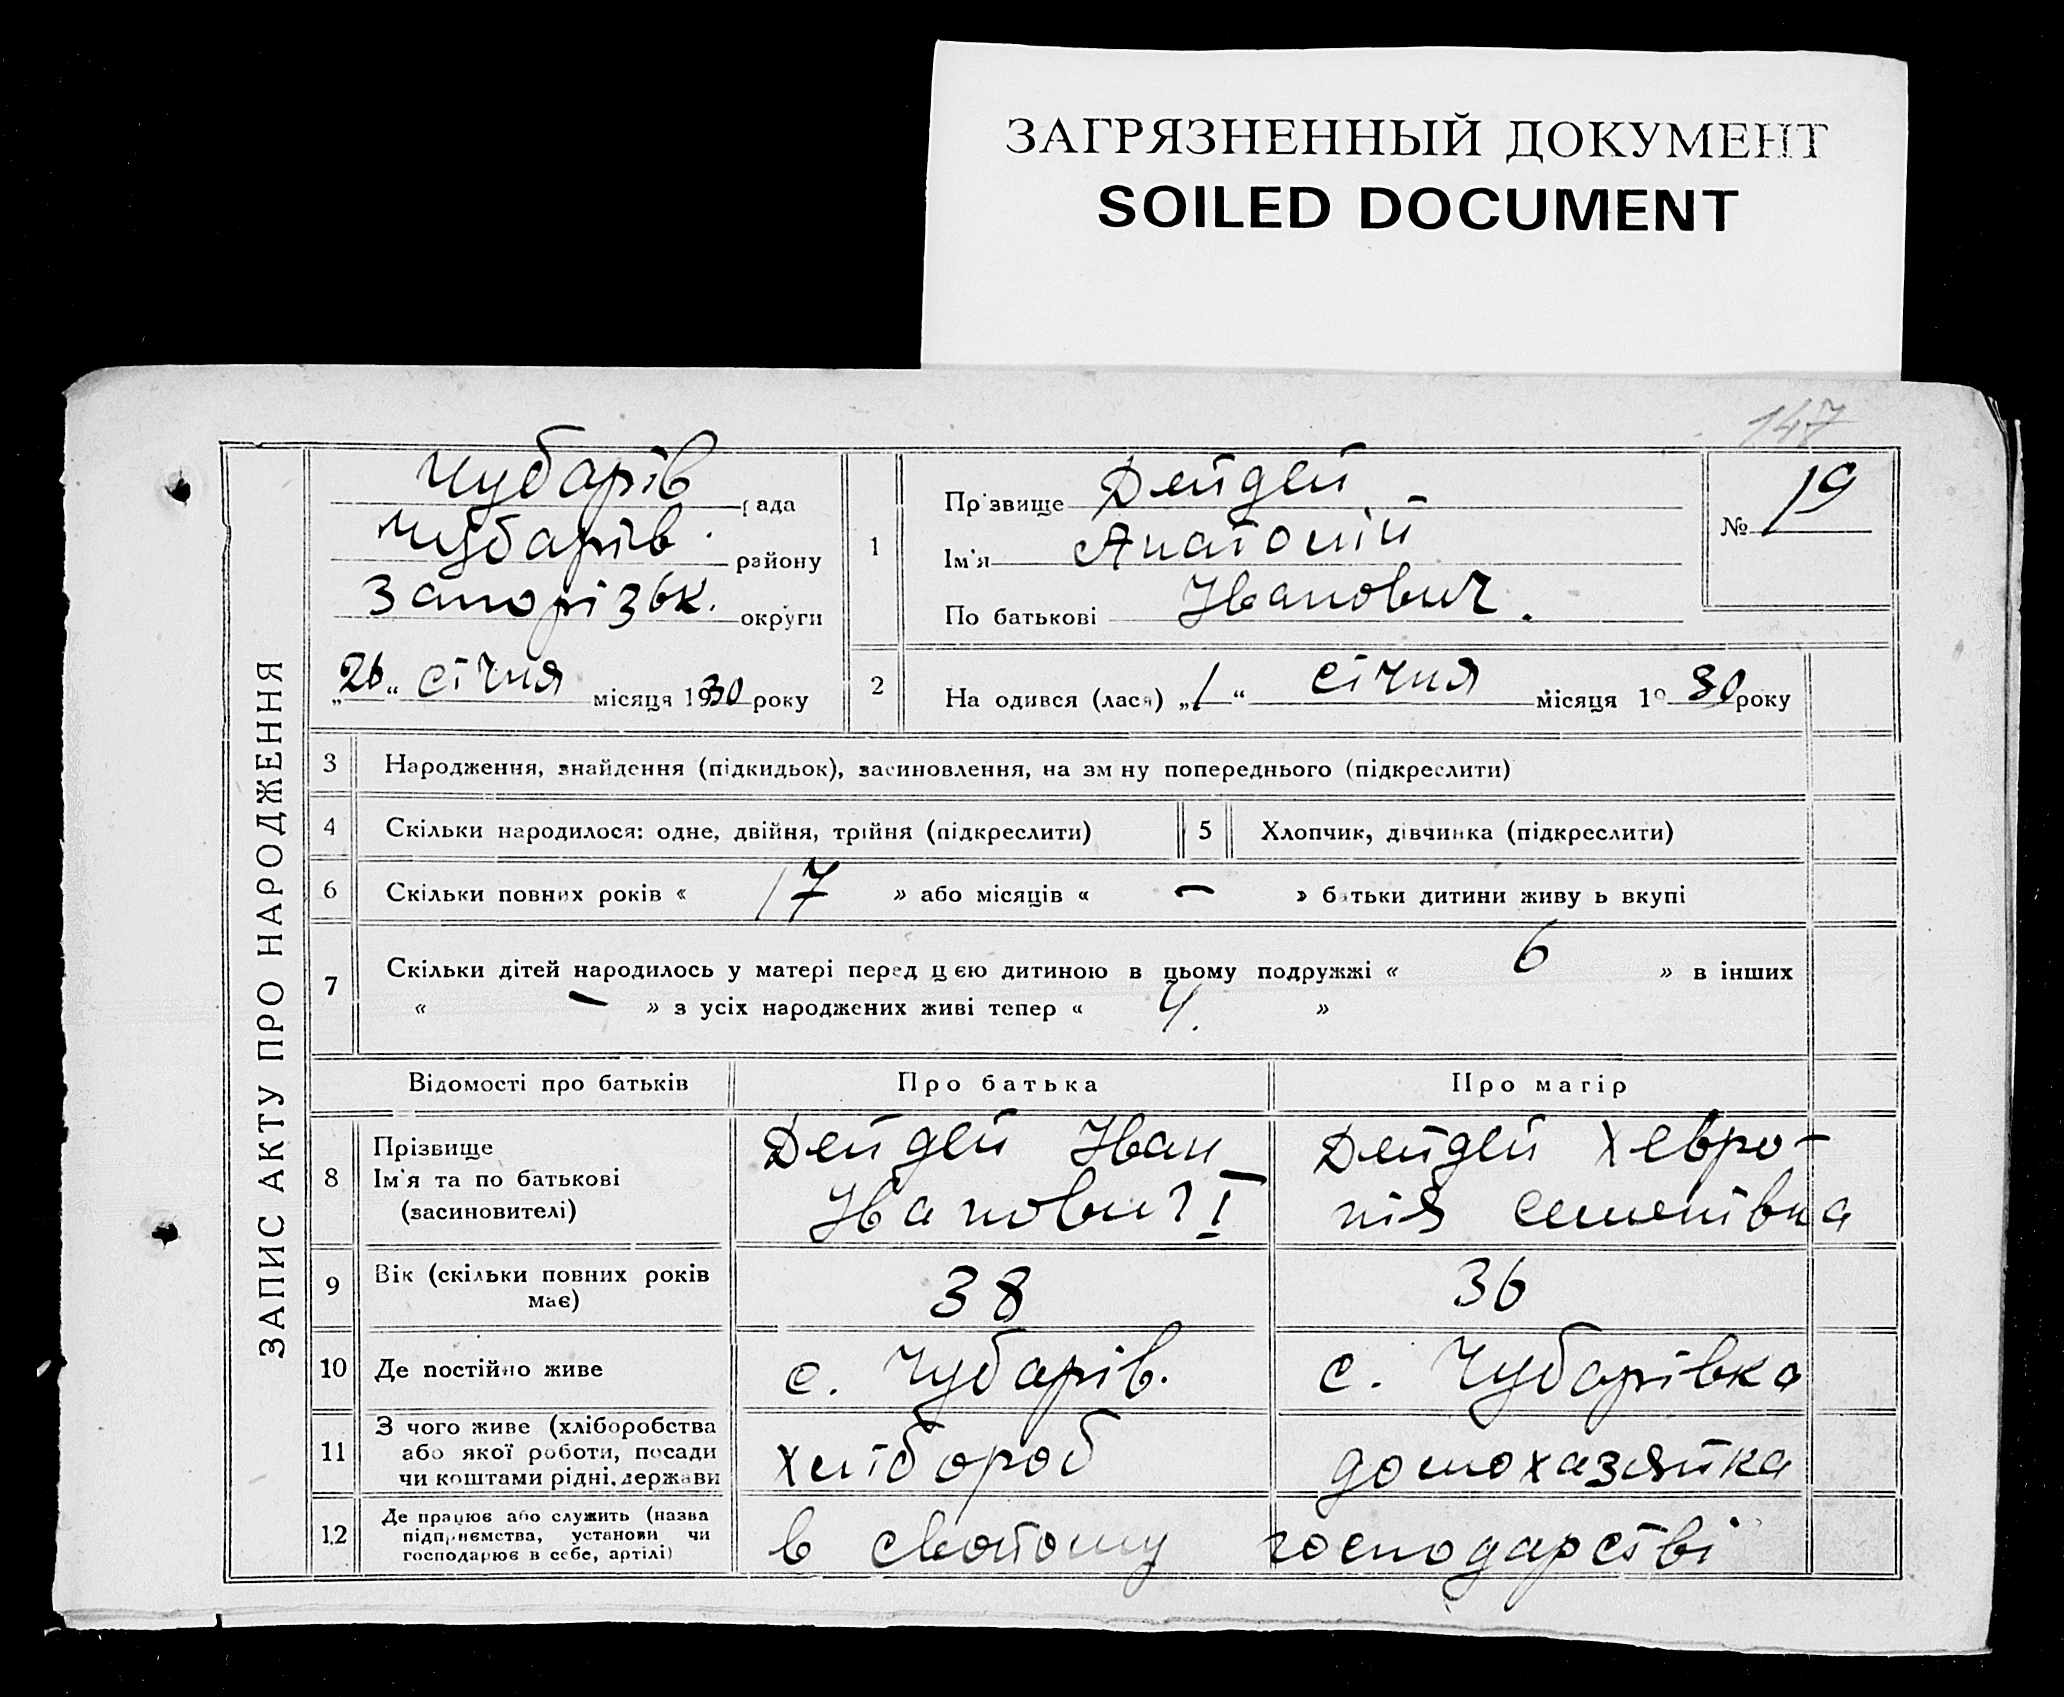 ЗАГРЯЗНЕННЫЙ ДОКУМЕНТ
SOILED DOCUMENT
147
ЗАПИС АКТУ ПРО НАРОДЖЕННЯ
Чубарів рада
Чубарів. району
Запорізьк. округи
„26“ січня місяця 1930 року
1
Прізвище Дейдей
Ім'я Анатолій
По батькові Іванович.
№ 19
2 На одився (лася) „1“ січня місяця 19 30 року
3 Народження, знайдення (підкидьок), засиновлення, на зм ну попереднього (підкреслити)
4 Скільки народилося: одне, двійня, трійня (підкреслити) 5 Хлопчик, дівчинка (підкреслити)
6 Скільки повних років « 17 » або місяців « – » батьки дитини живу ь вкупі
7 Скільки дітей народилось у матері перед цією дитиною в цьому подружжі « 6 » в інших
« – » з усіх народжених живі тепер « 4. »
Відомості про батьків Про батька Про матір
8 Прізвище
Ім'я та по батькові
(засиновителі)
Дейдей Іван
Іванович I
Дейдей Хевро-
нія Семенівна
9 Вік (скільки повних років
має)
38
36
10 Де постійно живе с. Чубарів. с. Чубарівка
11 З чого живе (хліборобства
або якої роботи, посади
чи коштами рідні, держави
хлібороб
домохазяйка
12 Де працює або служить (назва
підприємства, установи чи
господарює в себе, артілі)
в свойому господарстві